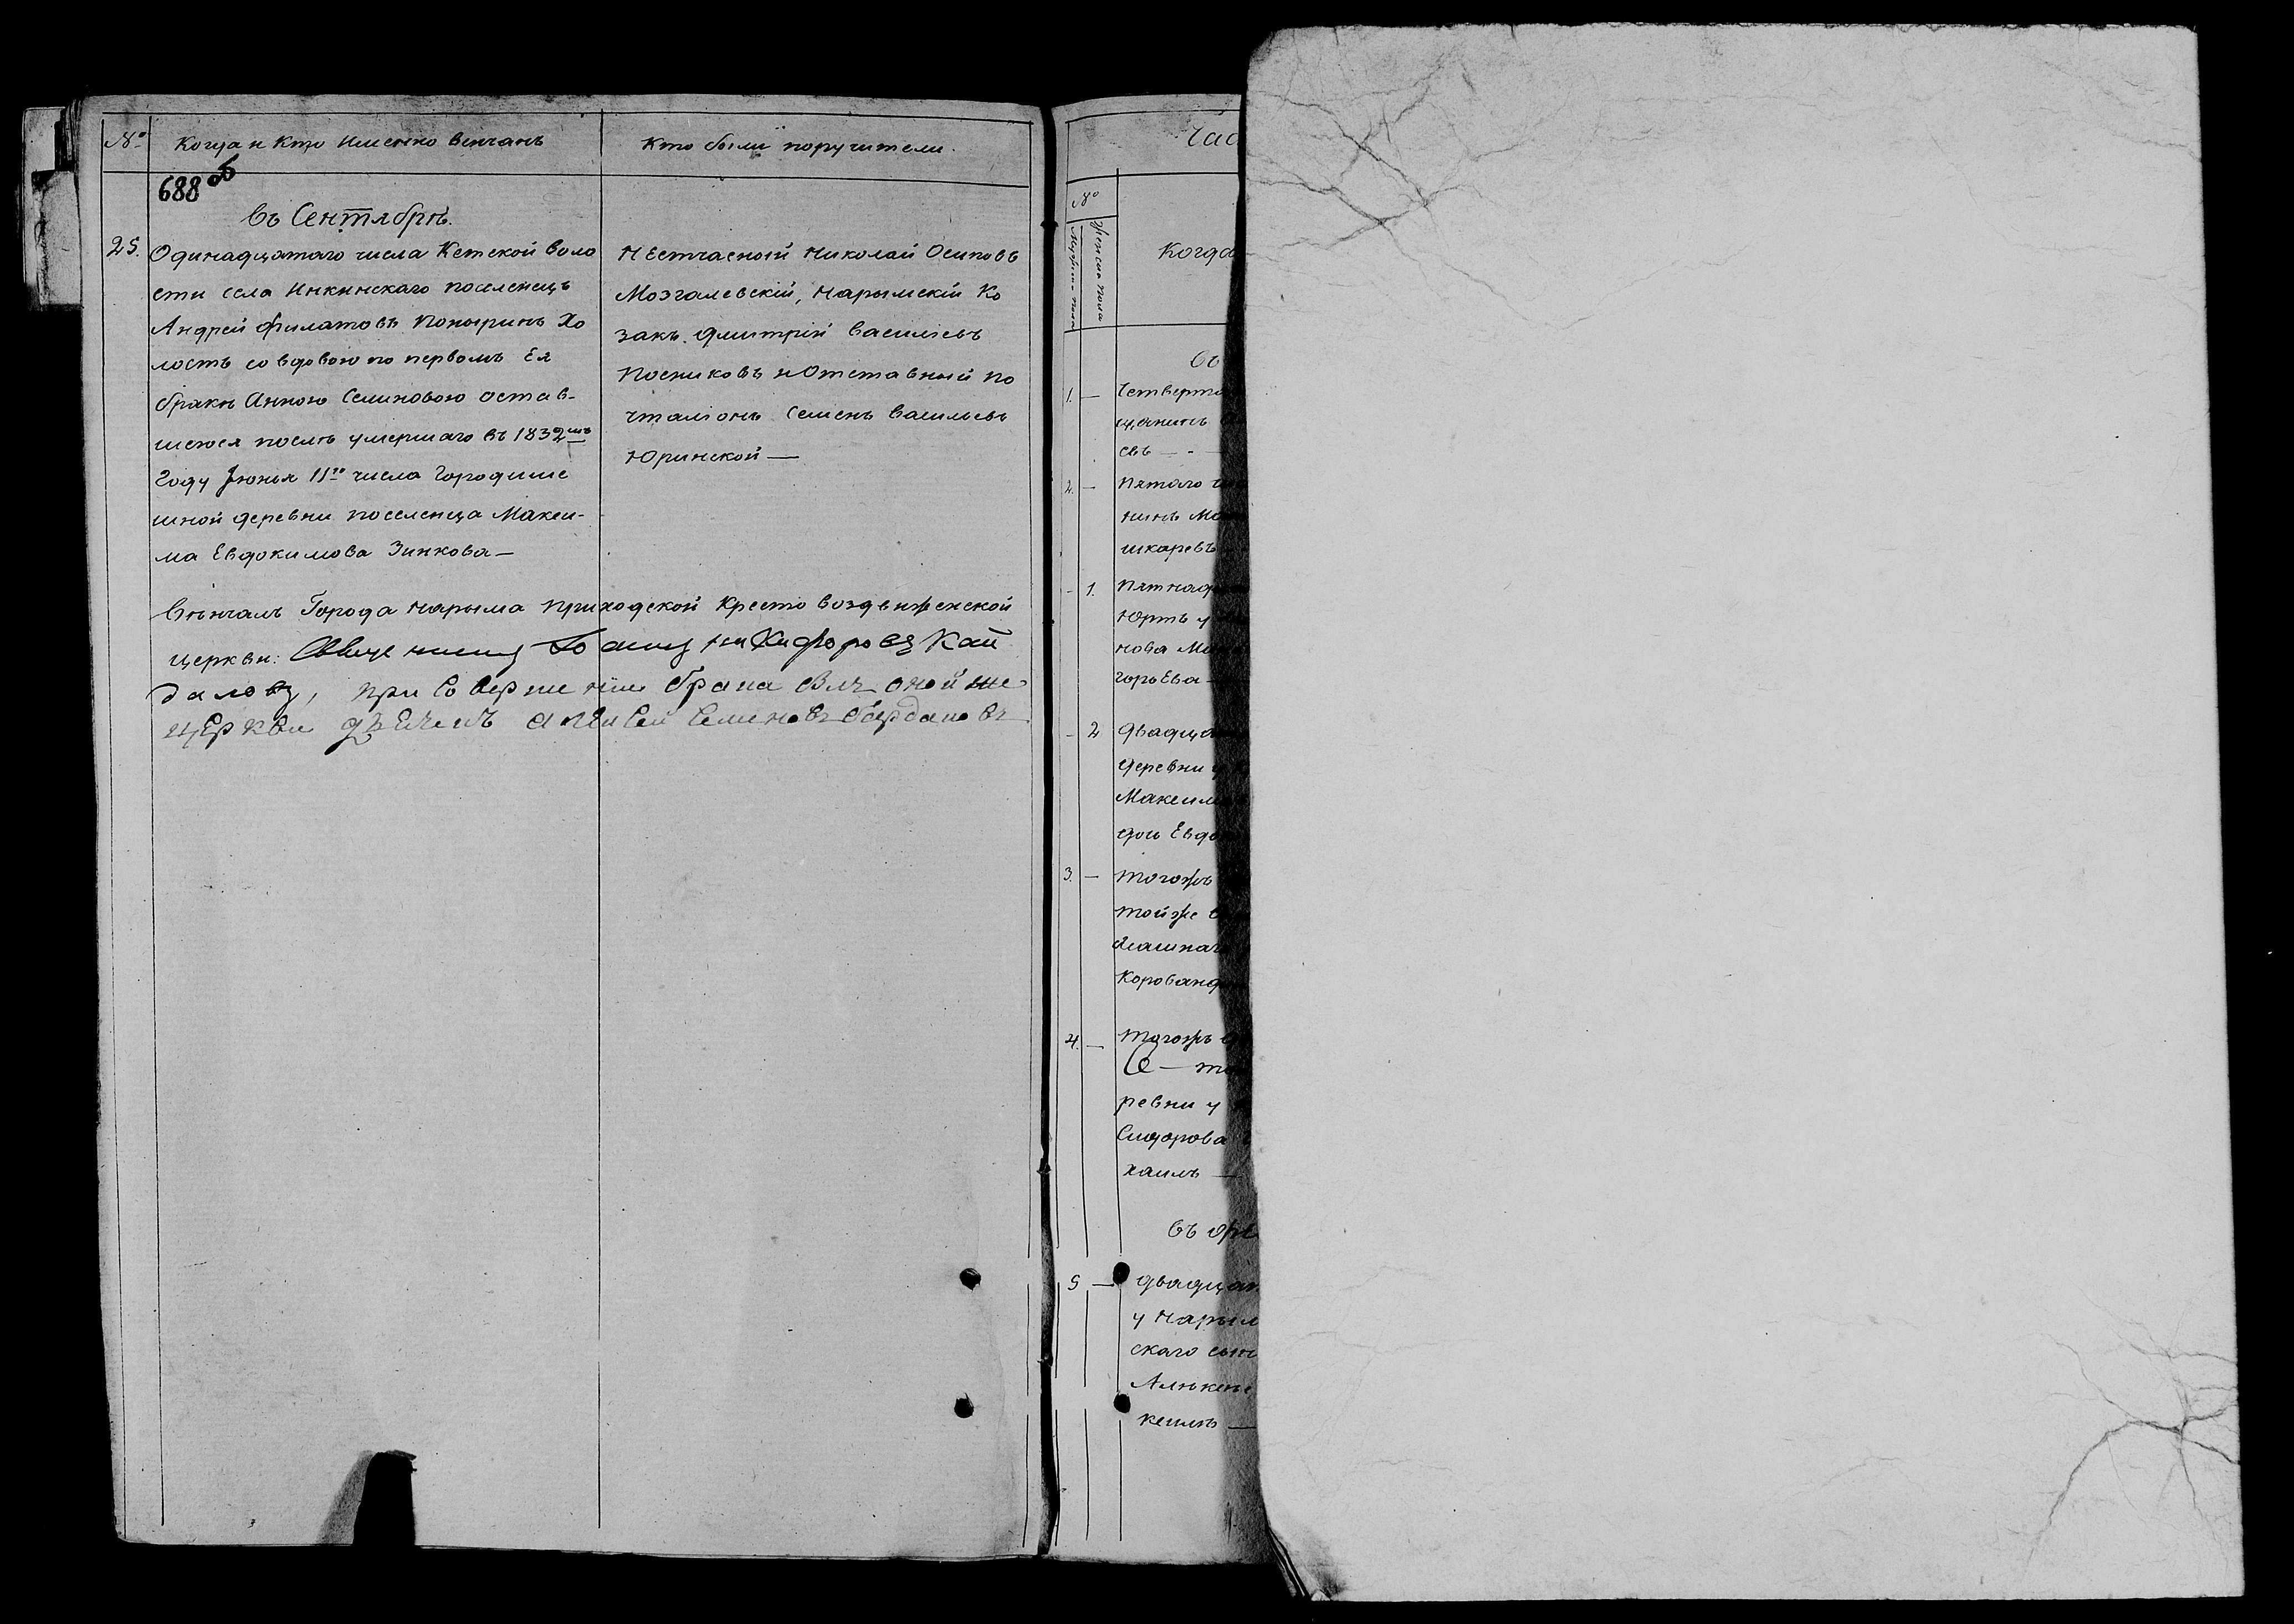 №
Когда и Кто Именно Венчанъ
Кто были поручители.
688 об
въ Сентябрѣ.
25.
Одинадцатаго числа Кетской воло
сти села Инкинскаго поселенецъ
Андрей Филатовъ Поныринъ хо
лостъ со вдовою по первомъ Ея
бракѣ Анною Семиновою остав-
шеюся послѣ умершаго въ 1832мъ
Году Іюнья 11го числа Городище
шной деревни поселенца Макси-
ма Евдокимова Зинкова —
НЕстчасной Николай Осиповъ
Мозгалевскій, Нарымскій Ко
закъ Дмитрій Васильевъ
Посниковъ и Отставный по
чталіонъ Семенъ Васильевъ
Юринской —
Вѣнчалъ Города Нарыма приходской Кресто воздвиженской
церкви: Священникъ Іоаннъ Никифоровъ Кай
даловъ, при Совершеніи брака былъ оной же
цЕркви дьячекъ Алексей Семеновъ
Час
№
Мужска пола
Женска пола
Когда
въ
1. —
Четверта
щанинъ
евъ — -
2. —
Пятаго
нинъ
шкаревъ
- 1.
Пятнад
Юртъ у
нова
горьЕва
- 2
Двадца
Деревни у
Максим
дочь Евдо
3. —
Тогожъ
тойже
Коровам
4. —
Тогожъ
ревни у
Сидорова
хаилъ —
въ Фе
5 —
двадцат
у Нарым
скаго сын